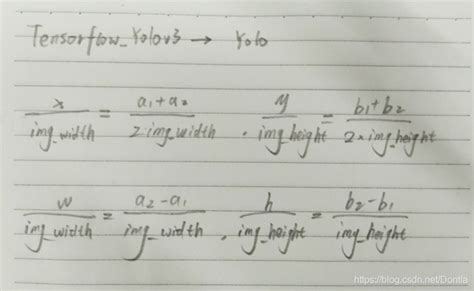 Tensorflow_Yolov3 → Yolo
x/img_width = (a₁+a₂)/(2 img_width) , y/img_height = (b₁+b₂)/(2×img_height)
w/img_width = (a₂-a₁)/img_width , h/img_height = (b₂-b₁)/img_height
https://blog.csdn.net/Dontla